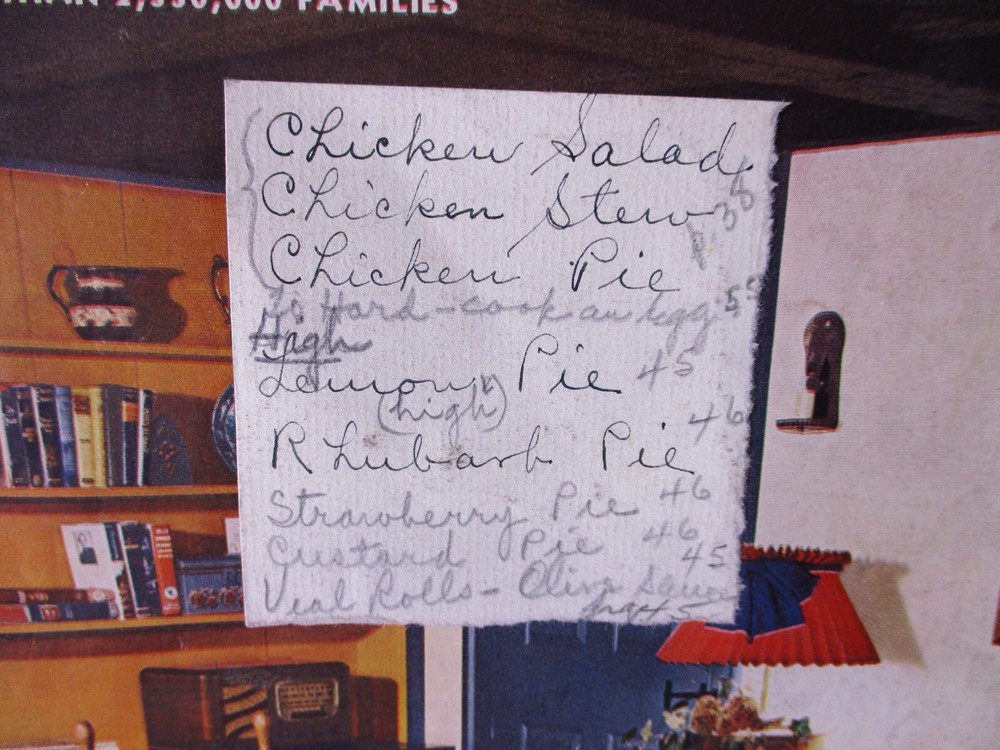 THAN 2,350,000 FAMILIES
Chicken Salad
Chicken Stew P 35
Chicken Pie
To Hard-cook an Egg 55
High
Lemon Pie 45
(high) 46
Rhubarb Pie
Strawberry Pie 46
Custard Pie 46
45
Veal Rolls - Olive Sauce
pg 45